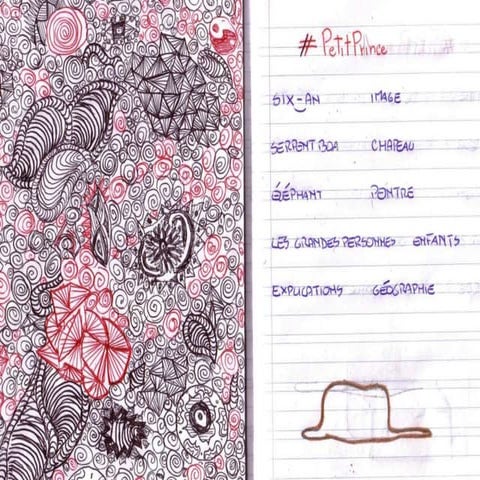 # PetitPrince
SIX-AN IMAGE
SERPENT BOA CHAPEAU
ÉLÉPHANT PEINTRE
LES GRANDES PERSONNES ENFANTS
EXPLICATIONS GÉOGRAPHIE